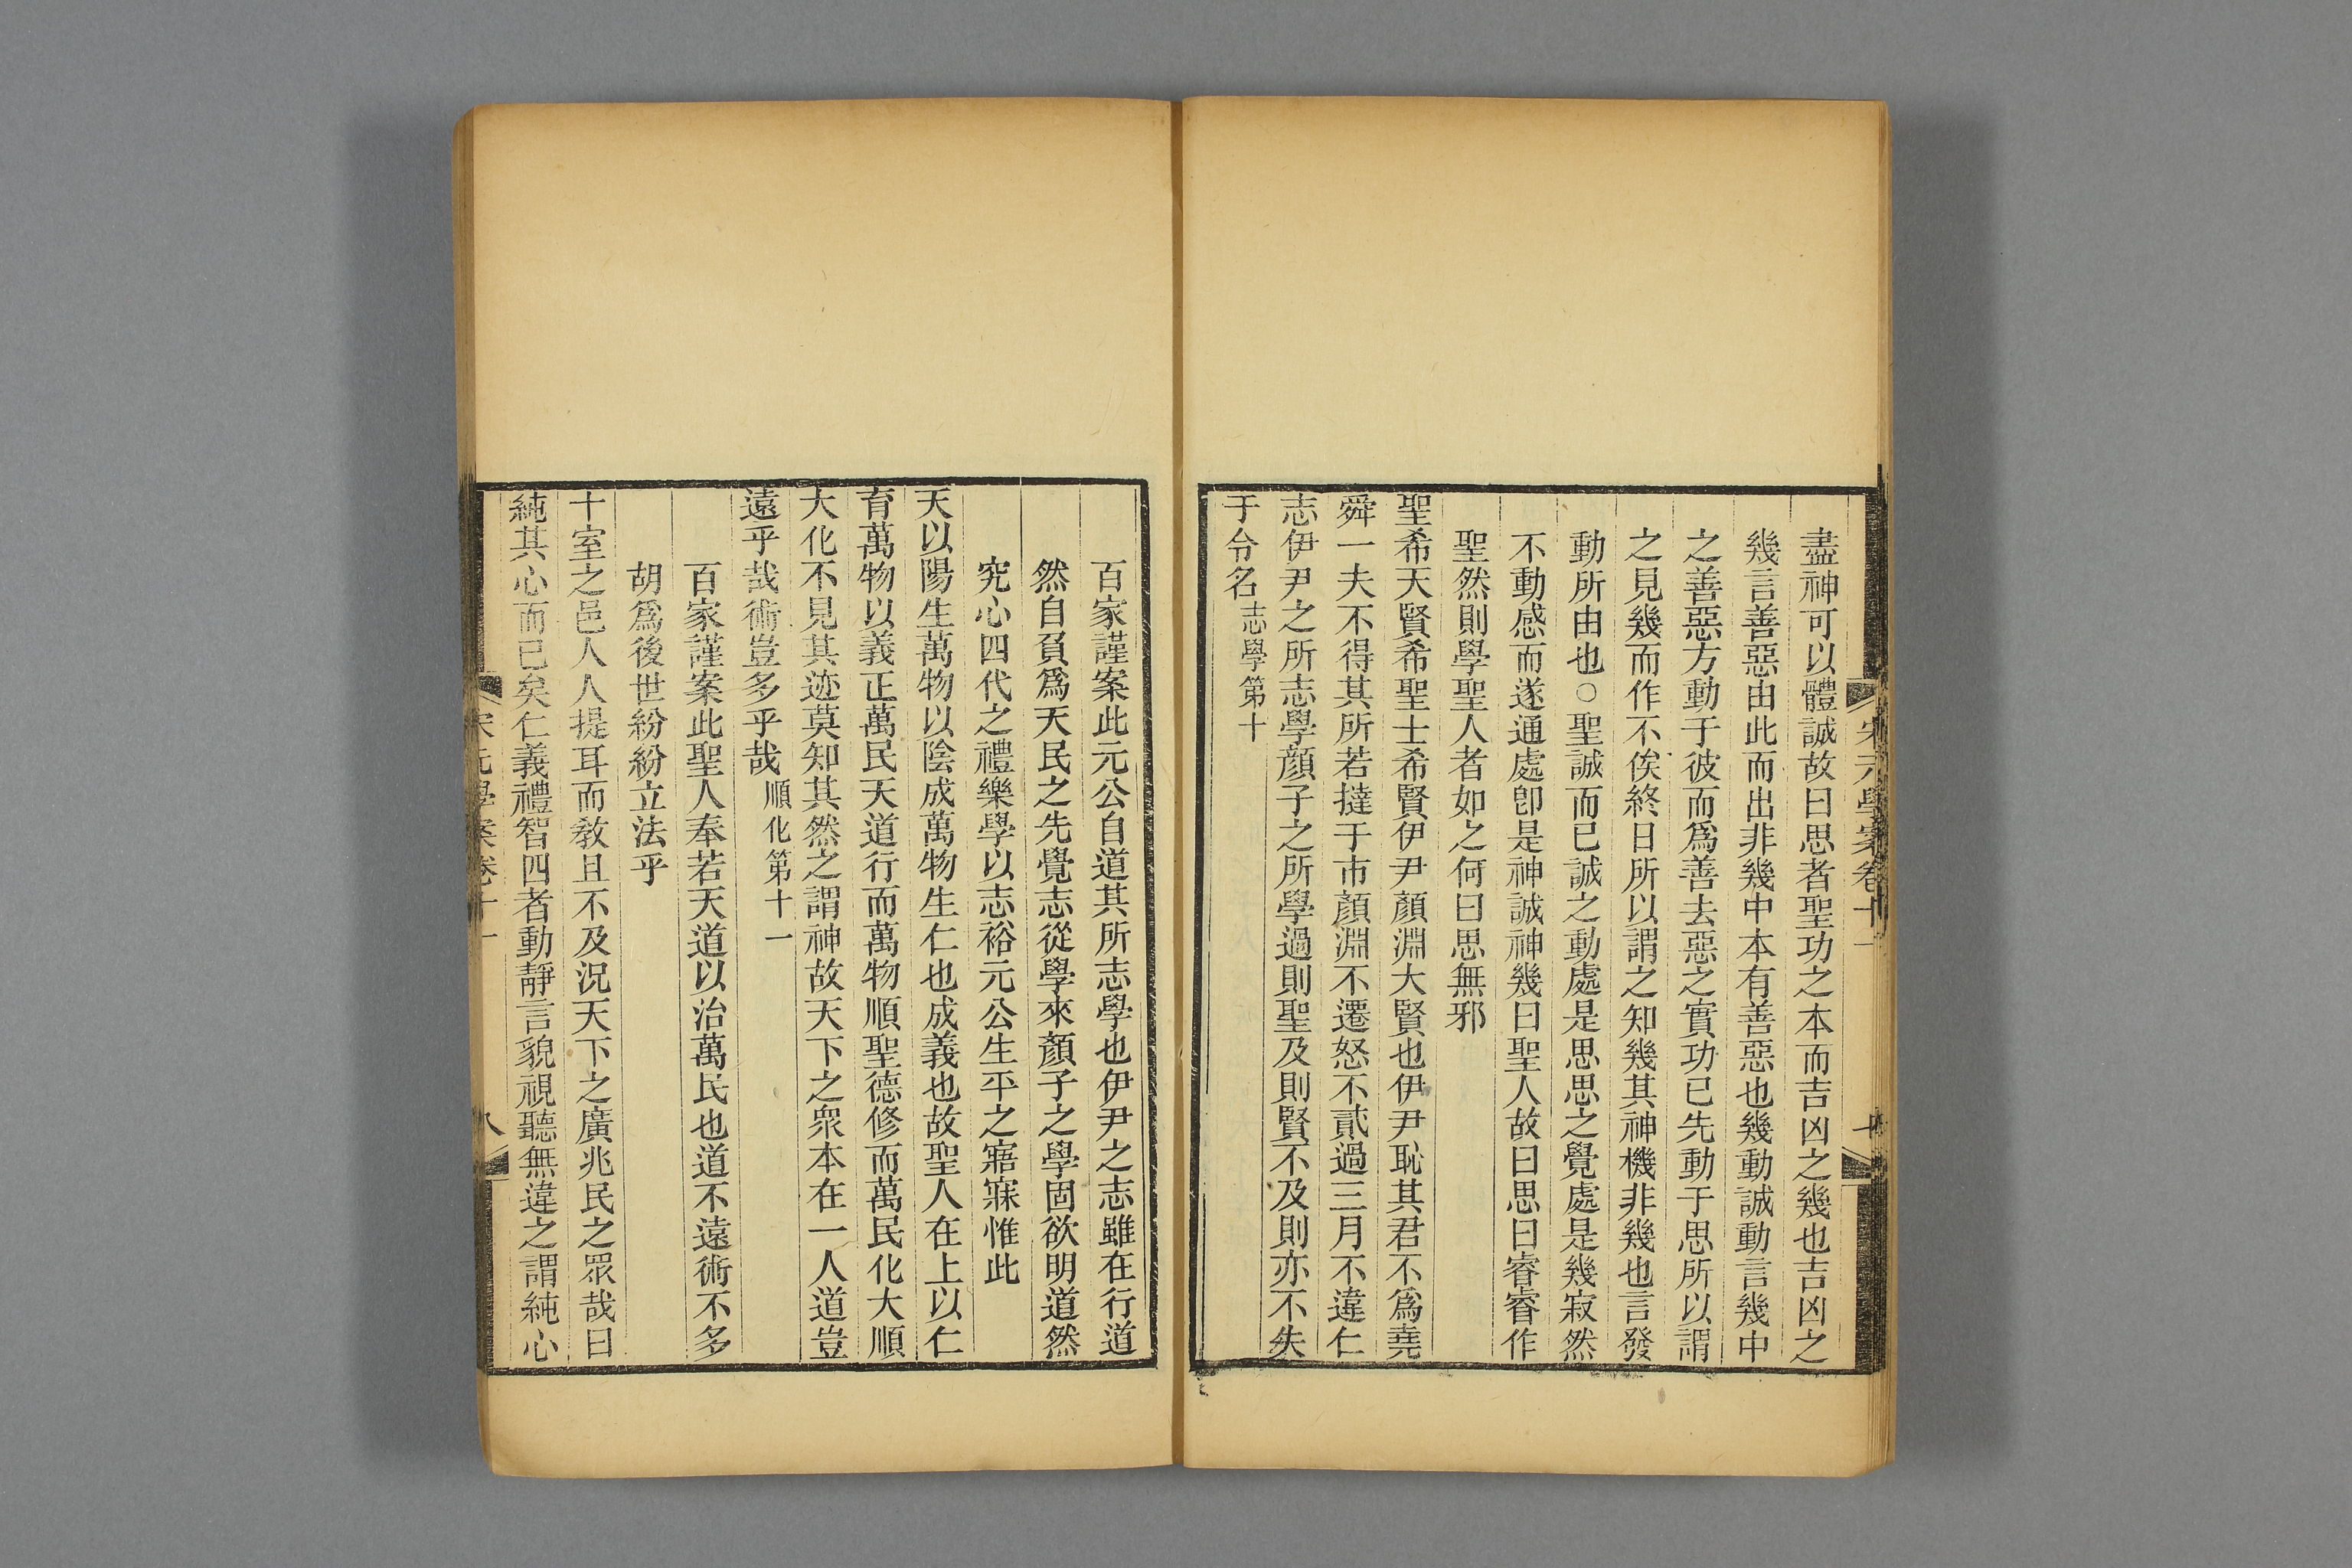 盡神可以體誠故曰思者聖功之本而吉凶之幾也吉凶之
幾言善惡由此而出非幾中本有善惡也幾動誠動言幾中
之善惡方動于彼而爲善去惡之實功已先動于思所以謂
之見幾而作不俟終日所以謂之知幾其神機非幾也言發
動所由也○聖誠而已誠之動處是思思之覺處是幾寂然
不動感而遂通處卽是神誠神幾曰聖人故曰思曰睿睿作
聖然則學聖人者如之何曰思無邪
聖希天賢希聖士希賢伊尹顏淵大賢也伊尹恥其君不爲堯
舜一夫不得其所若撻于市顏淵不遷怒不貳過三月不違仁
志伊尹之所志學顏子之所學過則聖及則賢不及則亦不失
于令名志學第十
百家謹案此元公自道其所志學也伊尹之志雖在行道
然自負爲天民之先覺志從學來顏子之學固欲明道然
究心四代之禮樂學以志裕元公生平之寤寐惟此
天以陽生萬物以陰成萬物生仁也成義也故聖人在上以仁
育萬物以義正萬民天道行而萬物順聖德修而萬民化大順
大化不見其迹莫知其然之謂神故天下之衆本在一人道豈
遠乎哉術豈多乎哉順化第十一
百家謹案此聖人奉若天道以治萬民也道不遠術不多
胡爲後世紛紛立法乎
十室之邑人人提耳而敎且不及況天下之廣兆民之眾哉曰
純其心而已矣仁義禮智四者動靜言貌視聽無違之謂純心
宋元學案卷十一
八